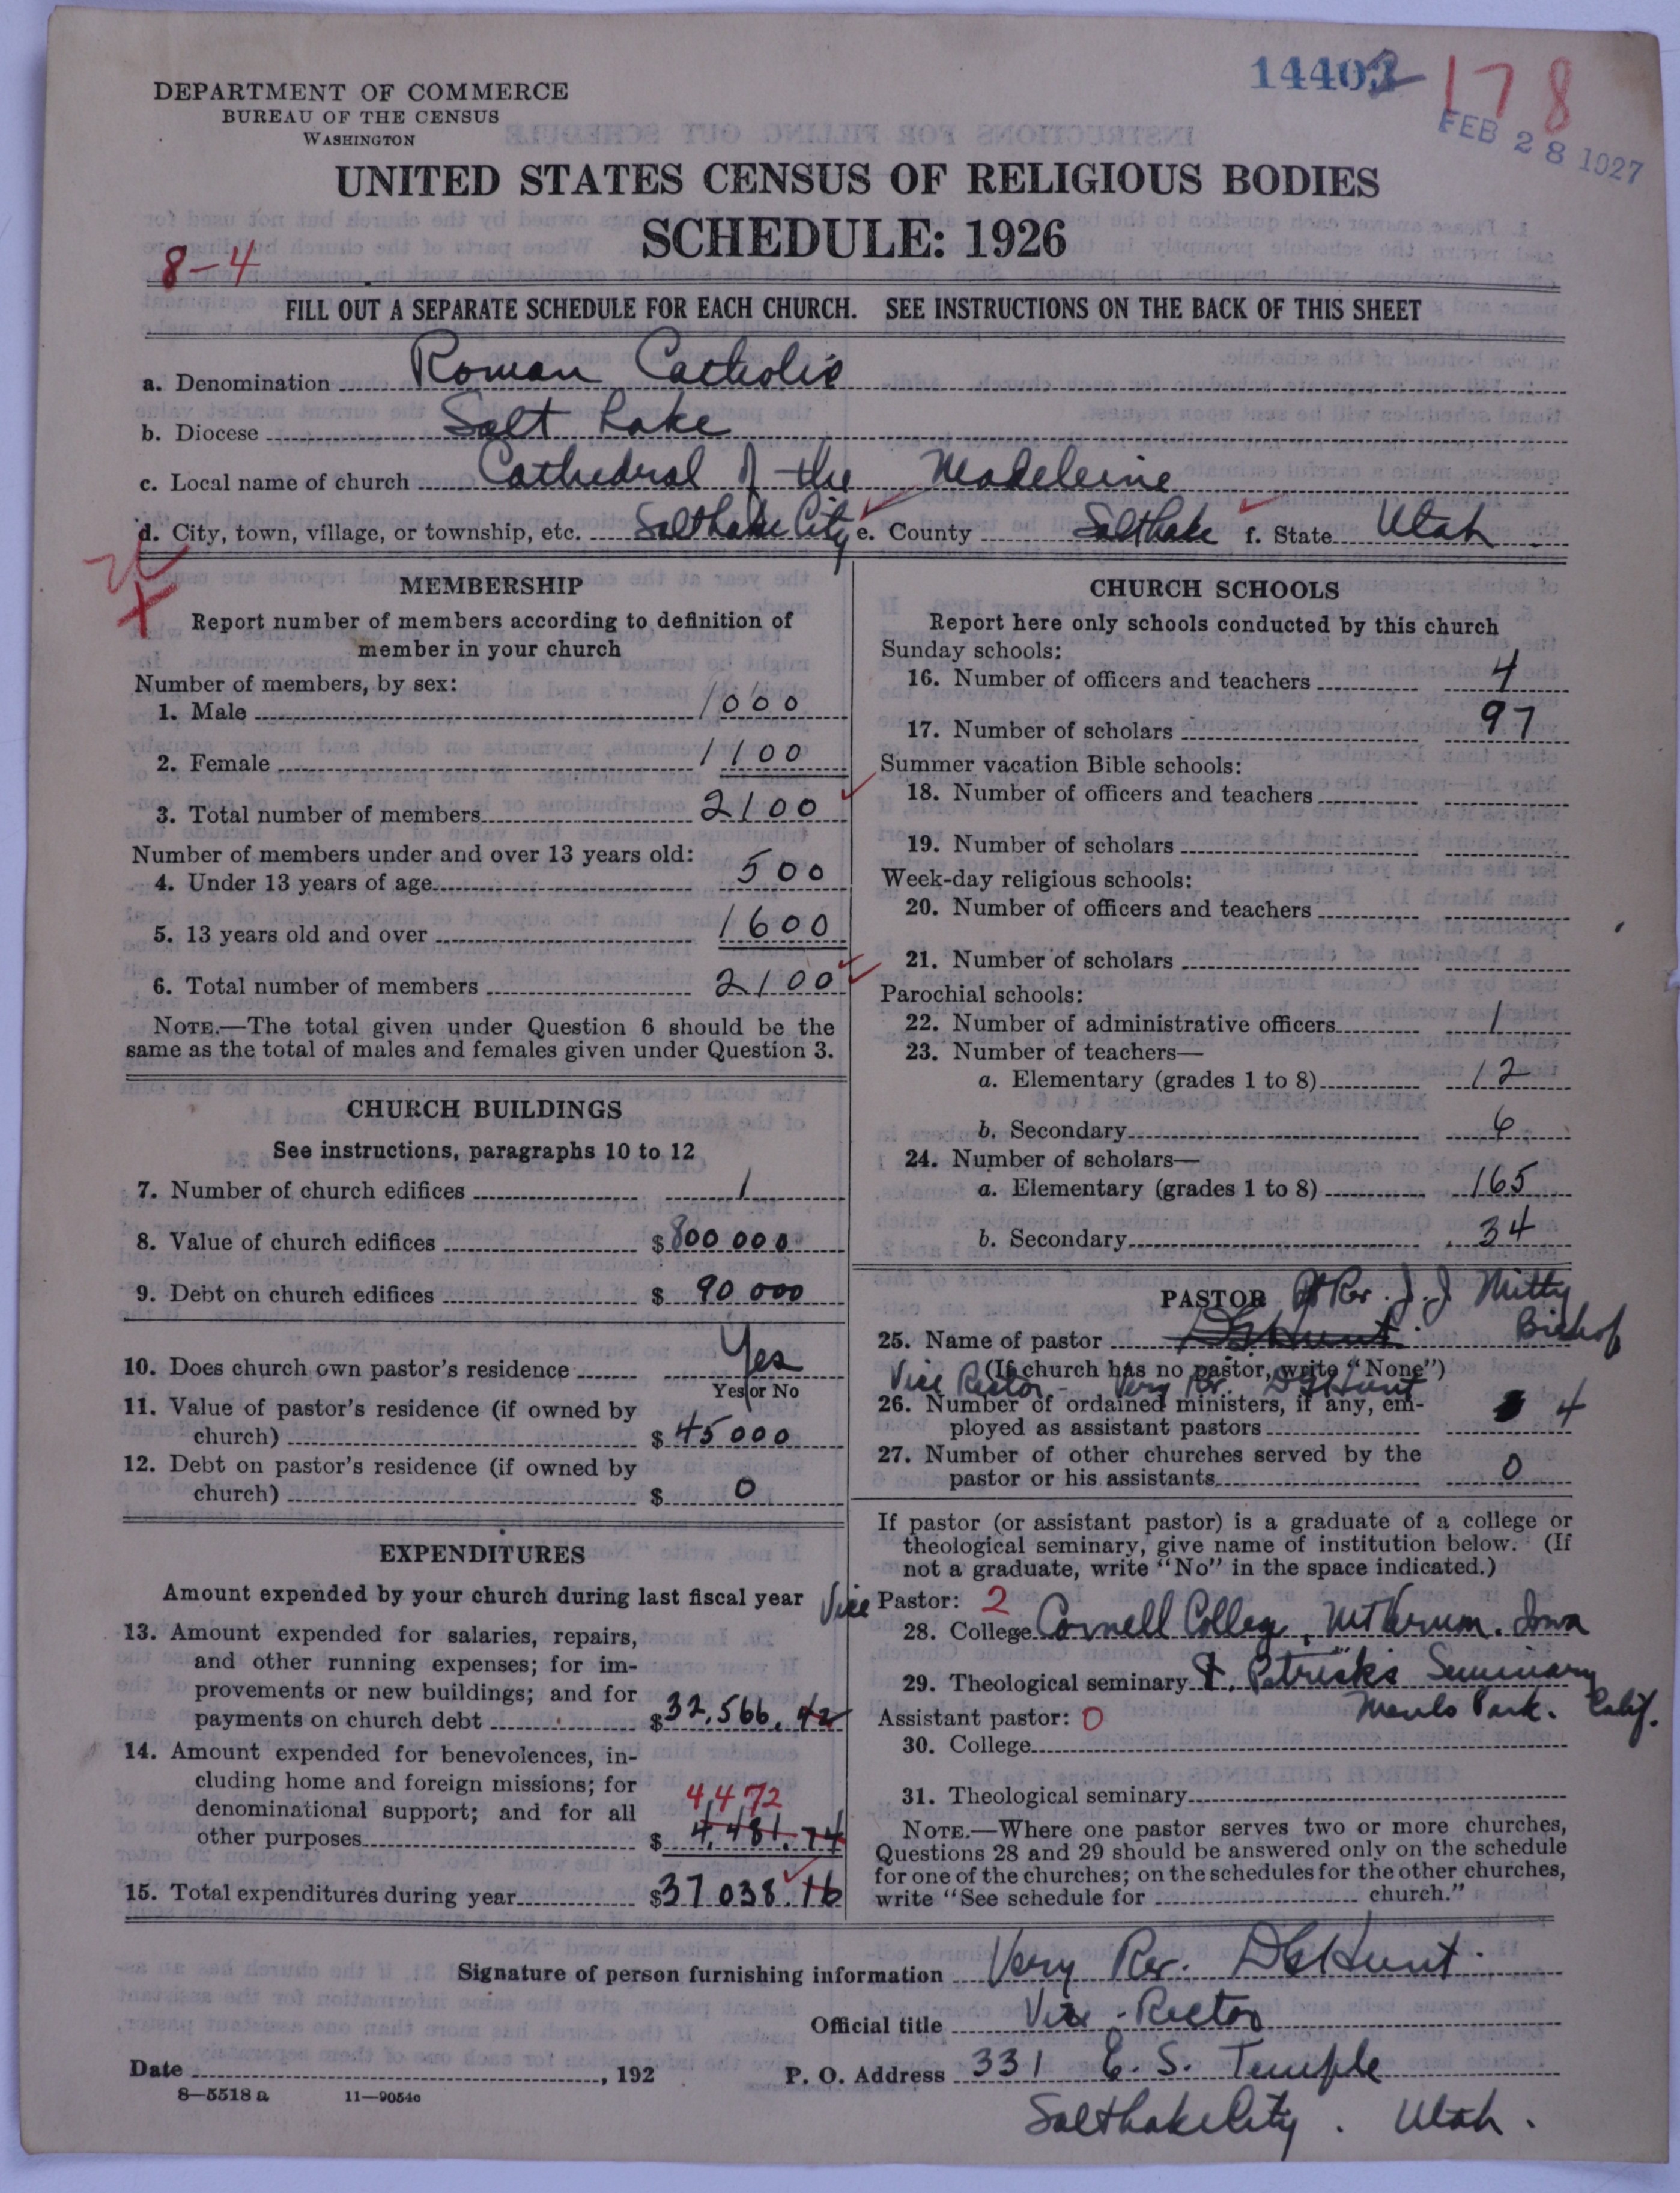 14403 178
DEPARTMENT OF COMMERCE
BUREAU OF THE CENSUS
WASHINGTON
FEB 28 1927
UNITED STATES CENSUS OF RELIGIOUS BODIES
SCHEDULE: 1926
8-4
FILL OUT A SEPARATE SCHEDULE FOR EACH CHURCH. SEE INSTRUCTIONS ON THE BACK OF THIS SHEET
a. Denomination Roman Catholic
b. Diocese Salt Lake
c. Local name of church Cathedral of the Madeleine
d. City, town, village, or township, etc. Salt Lake City e. County Salt Lake f. State Utah
MEMBERSHIP
Report number of members according to definition of
member in your church
Number of members, by sex:
1. Male 1000
2. Female 1100
3. Total number of members 2100
Number of members under and over 13 years old:
4. Under 13 years of age 500
5. 13 years old and over 1600
6. Total number of members 2100
NOTE.—The total given under Question 6 should be the
same as the total of males and females given under Question 3.
CHURCH BUILDINGS
See instructions, paragraphs 10 to 12
7. Number of church edifices 1
8. Value of church edifices $ 800 000
9. Debt on church edifices $ 90 000
10. Does church own pastor's residence Yes
Yes or No
11. Value of pastor's residence (if owned by
church) $ 45 000
12. Debt on pastor's residence (if owned by
church) $ 0
EXPENDITURES
Amount expended by your church during last fiscal year
13. Amount expended for salaries, repairs,
and other running expenses; for im-
provements or new buildings; and for
payments on church debt $ 32,566.42
14. Amount expended for benevolences, in-
cluding home and foreign missions; for
denominational support; and for all 4,472
other purposes $ 4,481.74
15. Total expenditures during year $ 37 038.16
CHURCH SCHOOLS
Report here only schools conducted by this church
Sunday schools:
16. Number of officers and teachers 4
17. Number of scholars 97
Summer vacation Bible schools:
18. Number of officers and teachers
19. Number of scholars
Week-day religious schools:
20. Number of officers and teachers
21. Number of scholars
Parochial schools:
22. Number of administrative officers 1
23. Number of teachers—
a. Elementary (grades 1 to 8) 12
b. Secondary 6
24. Number of scholars—
a. Elementary (grades 1 to 8) 165
b. Secondary 34
PASTOR Rt Rev. J. J. Mitty
25. Name of pastor DG Hunt Bishop
(If church has no pastor, write "None")
Vice Rector - Very Rev. DG Hunt
26. Number of ordained ministers, if any, em-
ployed as assistant pastors 4
27. Number of other churches served by the
pastor or his assistants 0
If pastor (or assistant pastor) is a graduate of a college or
theological seminary, give name of institution below. (If
not a graduate, write "No" in the space indicated.)
Vice Pastor: 2
28. College Cornell College, Mt Vernon. Iowa
29. Theological seminary St. Patricks Seminary
Menlo Park. Calif.
Assistant pastor: 0
30. College
31. Theological seminary
NOTE.—Where one pastor serves two or more churches,
Questions 28 and 29 should be answered only on the schedule
for one of the churches; on the schedules for the other churches,
write "See schedule for church."
Signature of person furnishing information Very Rev. DG Hunt
Official title Vice-Rector
Date , 192 P. O. Address 331 E. S. Temple
8—5518 a 11—9054c
Salt Lake City. Utah.